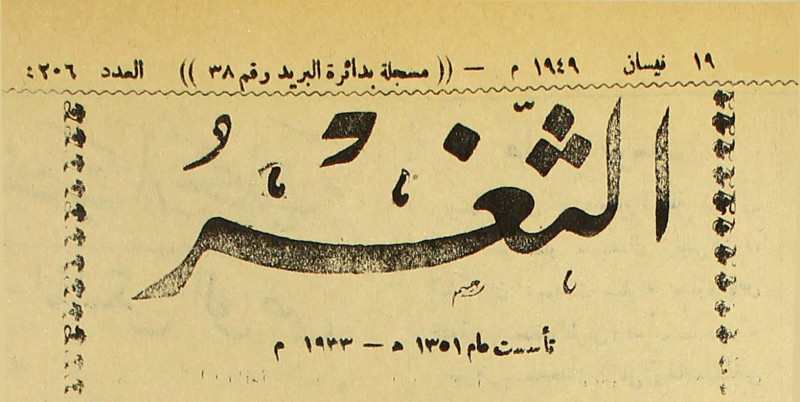 ١٩ نيسان ١٩٤٩ م — (( مسجلة بدائرة البريد رقم ٣٨ )) العدد ٤٢٠٦
الثَّغْرُ
تأسست عام ١٣٥١ هـ — ١٩٣٣ م